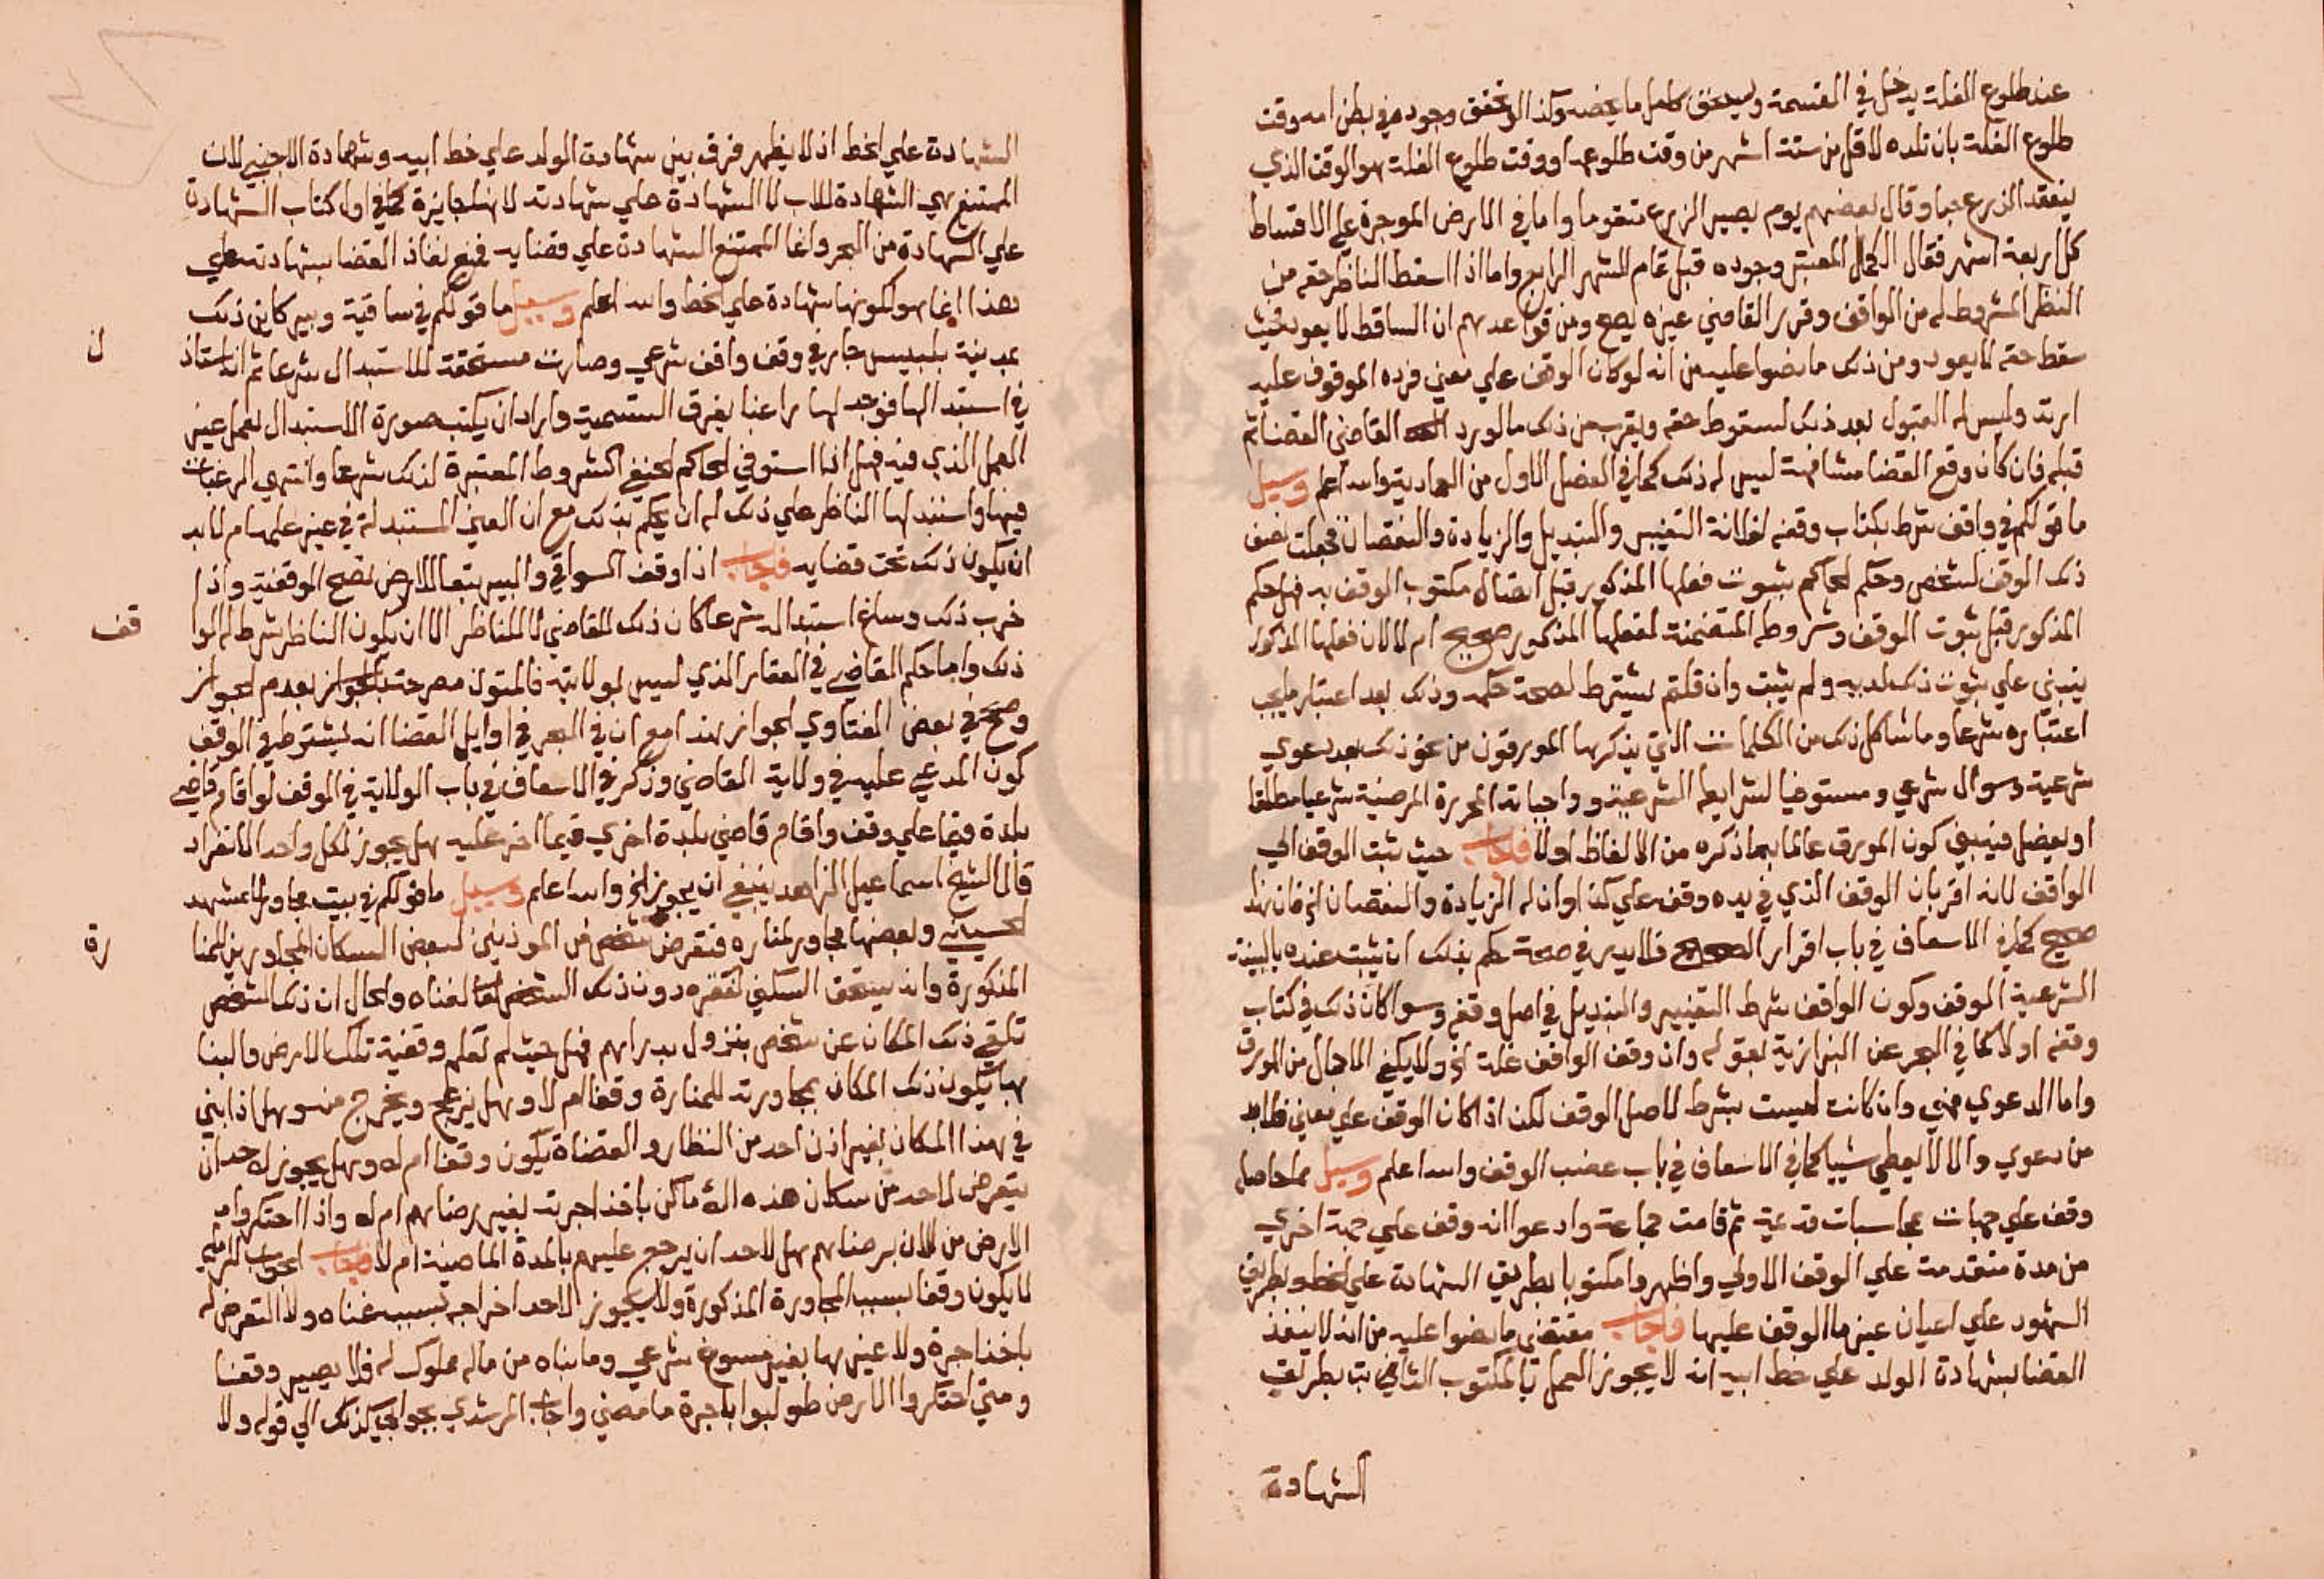 عند طلوع الغلة يدخل في القسمة ويستحق كامل ما يخصه وكذا لو تحقق وجوده في بطن امه وقت
طلوع الغلة بان تلده لاقل من ستة اشهر من وقت طلوعها ووقت طلوع الغلة هو الوقت الذي
ينعقد الزرع حبا وقال بعضهم يوم يصير الزرع متقوما واما في الارض الموجرة علي الاقساط
كل اربعة اشهر فقال الكمال المعتبر وجوده قبل تمام الشهر الرابع واما اذا اسقط الناظر حقه من
النظر المشروط له من الواقف وقرر القاضي غيره يصح ومن قواعدهم ان الساقط لا يعود فحيث
سقط حقه لا يعود ومن ذلك ما نصوا عليه من انه لو كان الوقف علي معين فرده الموقوف عليه
ارتد وليس له القبول بعد ذلك لسقوط حقه ويقرب من ذلك ما لو رد القاضي القضا ثم
قبله فان كان وقع القضا مشافهة ليس له ذلك كما في الفصل الاول من العمادية والله اعلم وسيل
ما قولكم في واقف شرط بكتاب وقفه لفلانة التغيير والتبديل والزيادة والنقصان فجعلت نصف
ذلك الوقف لشخص وحكم الحاكم بثبوت فعلها المذكور قبل اتصال مكتوب الوقف به فهل حكم
المذكور قبل ثبوت الوقف وشروطه المتضمنة لفعلها المذكور صحيح ام لا لان فعلها المذكور
ينبني علي ثبوت ذلك لديه ولم يثبت وان قلتم يشترط لصحة حكمه وذلك بعد اعتبار ما يجب
اعتباره شرعا وما شاكل ذلك من الكلمات التي يذكرها المورقون من نحو ذلك بعد دعوي
شرعية وسوال شرعي ومستوفيا لشرايطه الشرعية وواجباته المحررة المرضية شرعيا مطلقا
او يفصل فينبغي كون المورق عالما بما ذكره من الالفاظ اولا فاجاب حيث ثبت الوقف الي
الواقف لانه اقر بان الوقف الذي في يده وقفه علي كذا وان له الزيادة والنقصان الخ فان هذا
صحيح كما في الاسعاف في باب اقرار الصحيح فلا بد في صحة حكم بذلك ان يثبت عنده بالبينة
الشرعية الوقف وكون الواقف شرط التغيير والتبديل في اصل وقفه وسوا كان ذلك في كتاب
وقفه اولا كما في البحر عن البزازية بقوله وان وقف الواقف غلة الخ ولا يكفي الاجمال من المورق
واما الدعوي فهي وان كانت ليست بشرط لاصل الوقف لكن اذا كان الوقف علي معين فلا بد
من دعوي والا لا يعطي شييا كما في الاسعاف في باب غصب الوقف والله اعلم وسيل مما حاصله
وقف علي جهات بمحاسبات قديمة ثم قامت جماعة وادعوا انه وقف علي جهة اخري
من مدة متقدمة علي الوقف الاولي واظهروا مكتوبا بطريق الشهادة علي الخط وبطريق
الشهود علي اعيان غير ما الوقف عليها فاجاب مقتضي ما نصوا عليه من انه لا ينفذ
القضا بشهادة الولد علي خط ابيه انه لا يجوز العمل بالمكتوب الثابت بطريق
الشهادة
الشهادة علي الخط اذ لا يظهر فرق بين شهادة الولد علي خط ابيه وشهادة الاجنبي لان
الممتنع هي الشهادة للاب لا الشهادة علي شهادته لانها جايزة كما في اول كتاب الشهادة
علي الشهادة من البحر وانما الممتنع الشهادة علي قضايه فمنع نفاذ القضا بشهادته علي
هذا انما هو لكونها شهادة علي الخط والله اعلم وسيل ما قولكم في ساقية وبير كاين ذلك
بمدينة بلبيس جار في وقف واقف شرعي وصارت مستحقة للاستبدال شرعا ثم انه استاذن
في استبدالها فوجد لها راغبا بفرق التسمية واراد ان يكتب صورة الاستبدال بعمل غير
العمل الذي فيه فهل اذا استوفي الحاكم الحنفي الشروط المعتبرة لذلك شرعا وانتهي الرغبات
فيها واستبدلها الناظر علي ذلك له ان يحكم بذلك مع ان العين المستبدلة في غير عملها ام لا بد
ان يكون ذلك تحت قضايه فاجاب اذا وقف السواقي والبير تبعا للارض تصح الوقفية واذا
خرب ذلك وساغ استبداله شرعا كان ذلك للقاضي لا للناظر الا ان يكون الناظر شرط له الواقف
ذلك واما حكم القاضي في العقار الذي ليس بولايته فالمتون مصرحة بعدم الجواز
وصحح في بعض الفتاوي الجواز هذا مع ان في البحر في اوايل القضا انه يشترط في الوقف
كون المدعي عليه في ولاية القاضي وذكر في الاسعاف في باب الولاية في الوقف لو اقام قاضي
بلدة قيما علي وقف واقام قاضي بلدة اخري قيما اخر عليه هل يجوز لكل واحد الانفراد
قال الشيخ اسماعيل الزاهد ينبغي ان يجوز الخ والله اعلم وسيل ما قولكم في بيت مجاور لمشهد
الحسيني وبعضها مجاور لمناره فتعرض شخص من الموذنين لبعض السكان المجاورين للمنارة
المذكورة وانه يستحق السكني لفقره دون ذلك الشخص لغناه والحال ان ذلك الشخص
تلقي ذلك المكان عن شخص بنزول بدراهم فهل حيث لم تعلم وقفية تلك الارض والبنا
بها يكون ذلك المكان بمجاورته للمنارة وقفا ام لا وهل ينزعج ويخرج منه وهل اذا بني
في هذا المكان بغير اذن احد من النظار والقضاة يكون وقفا ام له وهل يجوز لاحد ان
يتعرض لاحد من سكان هذه الاماكن باخذ اجرته بغير رضاهم ام لا واذا احتكروا
الارض من الان برضاهم هل لاحد ان يرجع عليهم بالمدة الماضية ام لا فاجاب
لا يكون وقفا بسبب المجاورة المذكورة ولا يجوز لاحد اخراجه بسبب غناه ولا التعرض له
باخذ اجرة ولا غيرها بغير مسوغ شرعي وما بناه من ماله مملوك له فلا يصير وقفا
ومتي احتكروا الارض طولبوا باجرة ما مضي واجاب المرشدي بجوابي كذلك الي قوله ولا